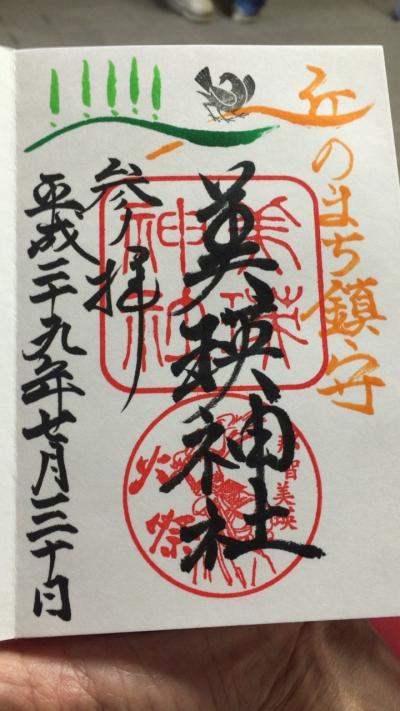 丘のまち鎮守
美瑛神社
参拝
平成二十九年七月三十日
美瑛
神社
那智美瑛
火祭